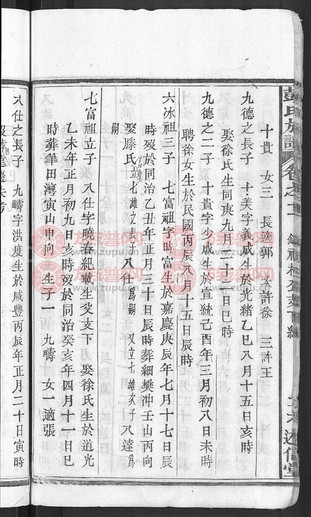 彭氏族譜
卷之十二
十貴 女三 長適郭 次許徐 三許王
九德之長子 十美字義成生於光緒乙巳八月十五日亥時
娶徐氏生同庚九月二十二日巳時
九德之二子 十貴字少成生於宣統己酉年三月初八日未時
聘徐女生於民國丙辰八月十五日辰時
六冰祖三子 七富祖字時富生於嘉慶庚辰年七月十七日辰
時歿於同治乙丑年正月三十日辰時葬細樊沖壬山丙向
娶滕氏 立七雄之長子八仕爲嗣 又立七雄次子八逵爲嗣
七富祖立子 八仕字曉春紀載生父支下 娶徐氏生於道光
乙未年正月初九日亥時歿於同治癸亥年四月十一日巳
時葬葦田灣寅山申向 生子一 九疇 女一適張
八仕之長子 九疇字洪度生於咸豐丙辰年正月二十日寅時